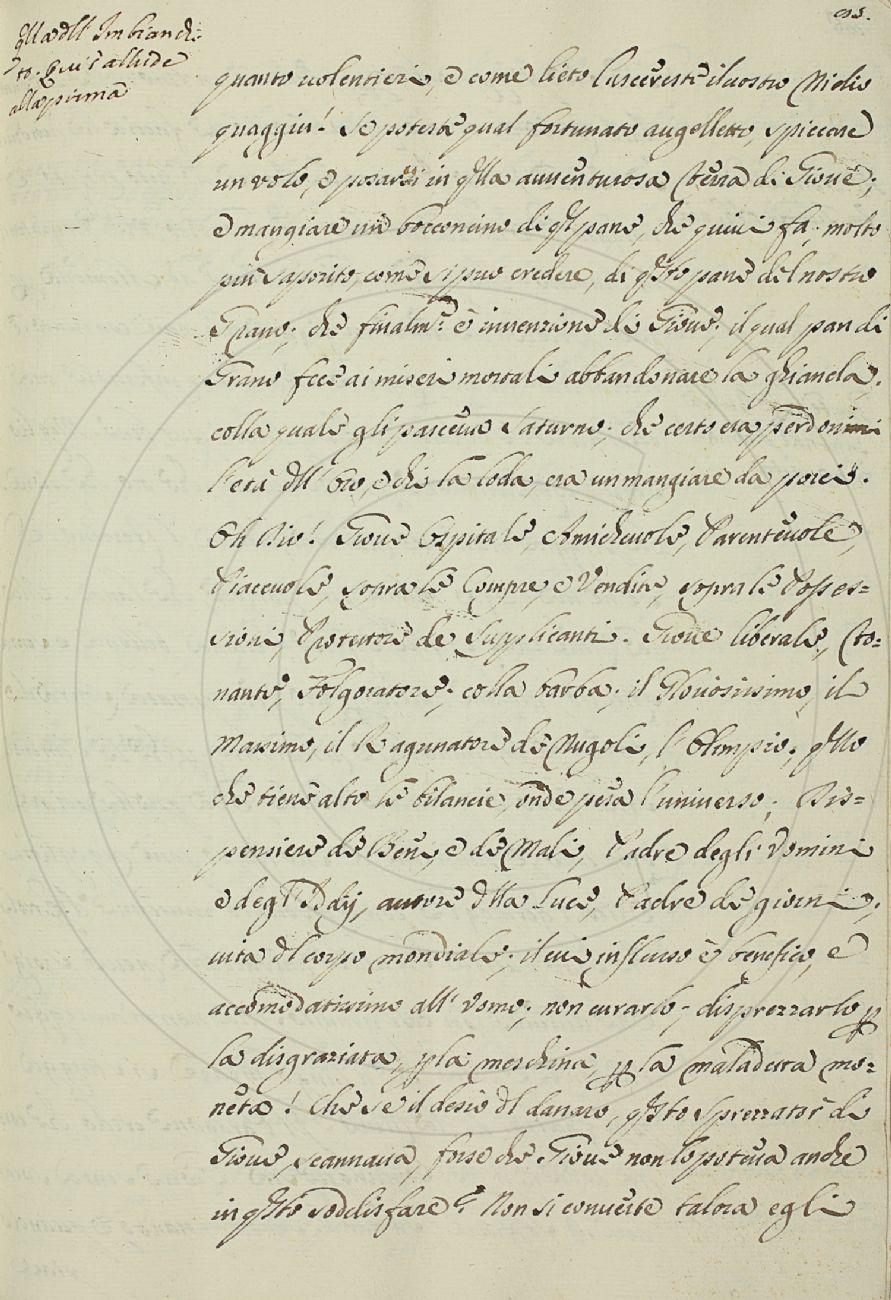 95.
qlla dll' Imbianch:
to. Qui s' allude
alla prima
quanto volentieri, e come lieto lascereste il vostro Nidio
quaggiu! Se poteste qual fortunato augelletto, spiccare
un volo, e posarvi in qlla avventurosa Terra di Giove;
e mangiare un bocconcino di ql pane, che quivi fa; molto
più saporito, come si può credere, di qsto pane del nostro
Grano; che finalm.e è invenzione di Giove; il qual pan di
Grano fece ai miseri mortali abbandonare la ghianda,
colla quale gli pasceva Saturno; che certo era, perdonimi
l'età dll' Oro, e chi la loda, era un mangiare da porci.
Oh Dio! Giove Ospitale, Amichevole, Parentevole,
Piacevole, sopra le Compre, e Vendite, sopra le Posses=
sioni, Protettore de Supplicanti. Giove liberale, To=
nante, Folgoratore; colla barba; il Gloriosissimo, il
Massimo, il Ragunatore de Nugoli, l' Olimpio; qllo
che tiene alto le bilancie, onde pesa l'universo; Dis=
pensiere de Beni, e de Mali, Padre degli Uomini
e degl' Iddij, autore dlla Luce, Padre de giorni,
vita dl corpo mondiale; il cui influsso è benefico, e
accomodatissimo all' Uomo; non curarlo; disprezzarlo p
la disgraziata, p la meschina, p la maladetta mo=
neta! Che se il desio dl danaro, qsto sprezzator di
Giove, scannava, forse che Giove non lo poteva anche
in qsto soddisfare? Non si converte talora egli